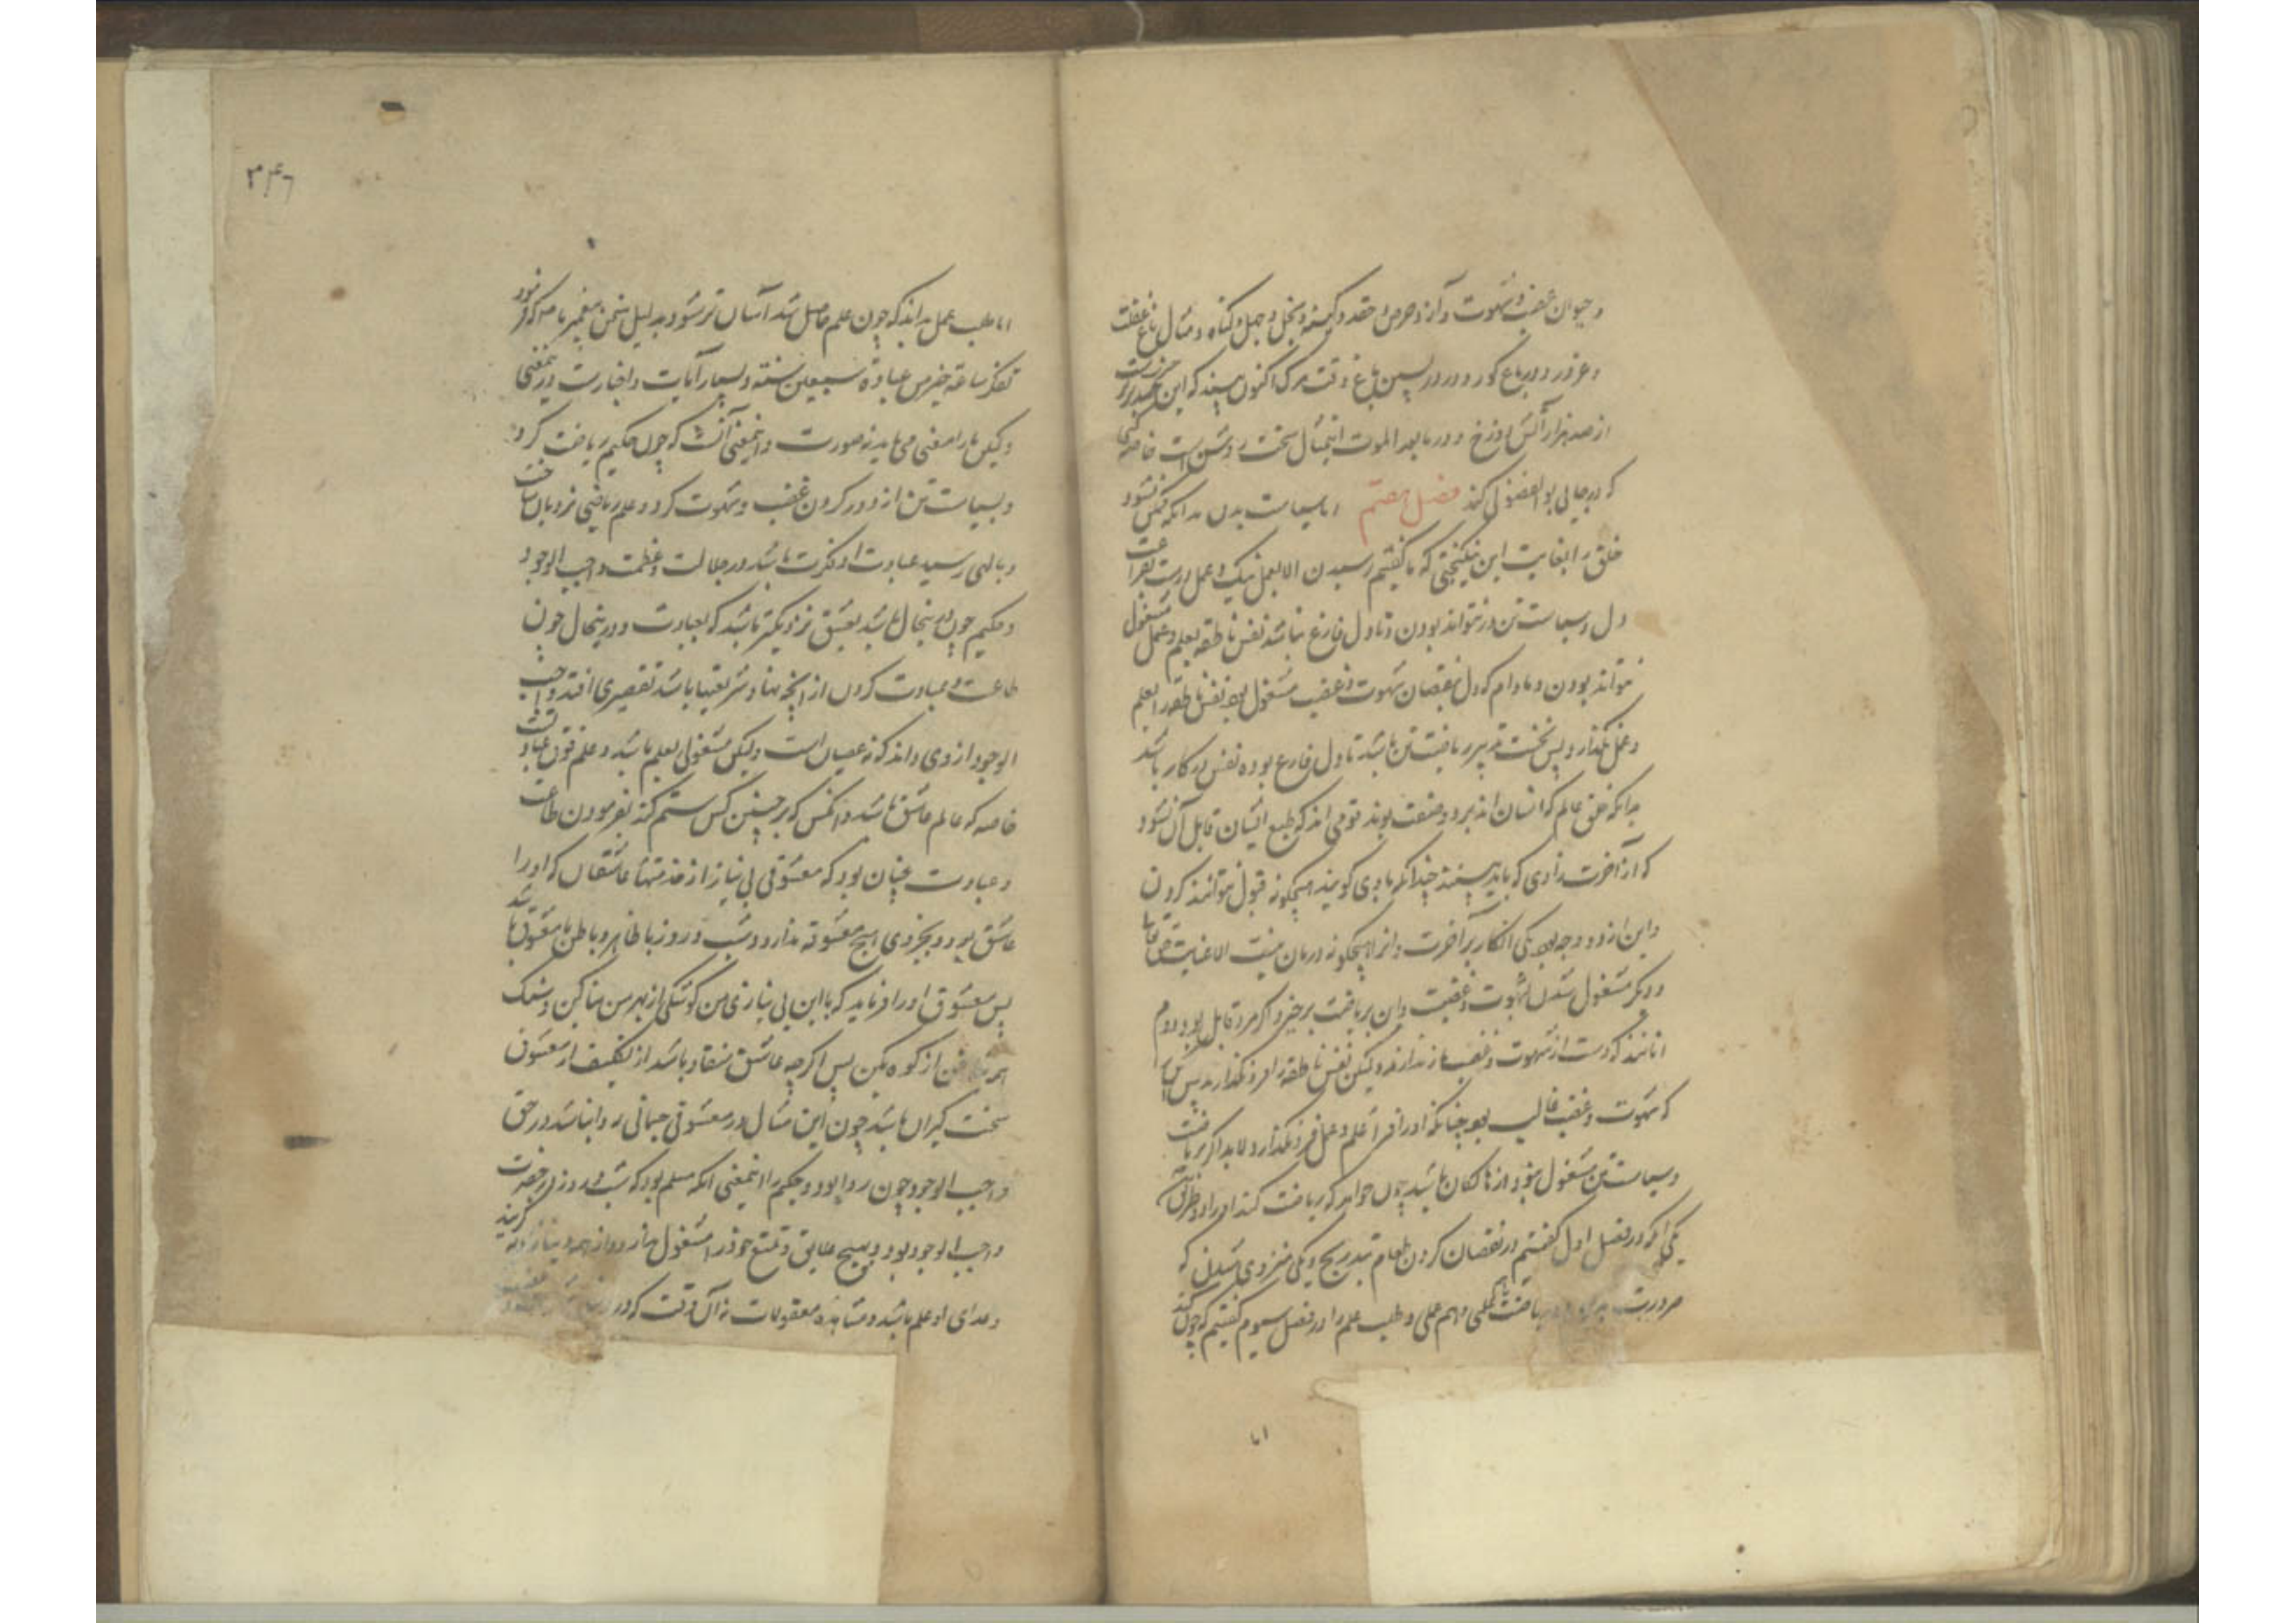 و حیوان غضب و شهوت و آز و حرص و حقد و کینه و بخل و جهل و گناه و مثال باغ غفلت
و غرور و در باغ کور و در در پسین باغ وقت مرگ اکنون ببیند که این
از صد هزار آتش دوزخ و در ما بعد الموت اینمثال سخت روشن است خاصه کسی
که در جایی بوالفضولی کند فصل هفتم اما سیاست بدن بدانکه ممکن نشود
خلق را بغایت این نیکبختی که ما گفتیم رسیدن الا بعمل نیک و عمل درست بفراغت
دل و سیاست تن در نتواند بودن و تا دل فارغ نباشد نفس ناطقه بعلم و عمل مشغول
نتواند بودن و مادام که دل بنقصان شهوت و غضب مشغول بود نفس ناطقه را بعلم
و عمل نگذارد پس نخست تدبیر ریاضت تن باشد تا دل فارغ بوده نفس در کار باشد
بدانکه خلق عالم که انسان اند بر دو صفت بوند قومی اند که طبع ایشان قابل آن نشود
که از آخرت زادی که باید ببینند چندانکه با وی گویند هیچگونه قبول نتوانند کردن
و این از دو وجه بود یکی انکار بر آخرت و انرا هیچگونه درمان نیست الا عنایت
و دیگر مشغول شدن بشهوت و غضب و ان بریاضت برخیزد اگر مرد قابل بود و دوم
انانند که دست از شهوت و غضب باز ندارند ولیکن نفس ناطقه را فرو نگذارند پس
که شهوت و غضب غالب بود چنانکه او را فرا علم و عمل فرو نگذارد لابد اگر بریاضت
و سیاست تن مشغول نبود از هالکان باشد چون خواهد که ریاضت کند او را دو طریق
یکی که در فصل اول گفتیم در نقصان کردن طعام بتدریج و یکی منزوی شدن که
ضرورت ریاضت هم علمی و هم عملی و طلب علم را در فصل سیوم گفتیم که چون کند
اما
۳۴۶
اما طلب عمل بداند که چون علم حاصل شد آسان تر شود بدلیل سخن پیغمبر ما ص که فرمود
تفکر ساعة خیر من عبادة سبعین سنة و بسیار آیات و اخبارست درینمعنی
ولیکن ما را معنی می باید نه صورت و اینمعنی آنست که چون حکیم ریاضت کرد
و بسیاست تن از دور کردن غضب و شهوت کرد و علم ریاضی نردبان ساخت
و بالهی رسید عبادت او فکرت باشد در جلالت و عظمت واجب الوجود
و حکیم چون درینحال باشد بعشق نزدیکتر باشد که بعبادت و درینحال چون
طاعت و عبادت کردن از انچه نهاد شریعتها باشد تقصیری افتد واجب
الوجود از وی داند که نه عصیان است ولیکن مشغولی بعلم باشد و علم فوق عبادتست
خاصه که عالم عاشق باشد و انکس که بر چنین کس ستم کند بفرمودن طاعت
و عبادت چنان بود که معشوقی بی نیاز از خدمتها عاشقان که او را
عاشق بود و بجز وی هیچ معشوقه ندارد و شب و روز با ظاهر و باطن با معشوق باشد
پس معشوق او را فرماید که با این بی نیازی من کوشکی از بهر من بنا کن و سنگ
از کوه بکن پس اگرچه عاشق منقاد باشد از تکلیف از معشوق
سخت گران باشد چون این مثال در معشوقی جسمانی روا نباشد در حق
واجب الوجود چون روا بود و حکیم را اینمعنی انگه مسلم بود که شب و روز در حضرت
واجب الوجود بود و بهیچ علایق و تمتع خود را مشغول ندارد و از همه
و غذای او علم باشد و مشاهده معقولات نه آن وقت که در